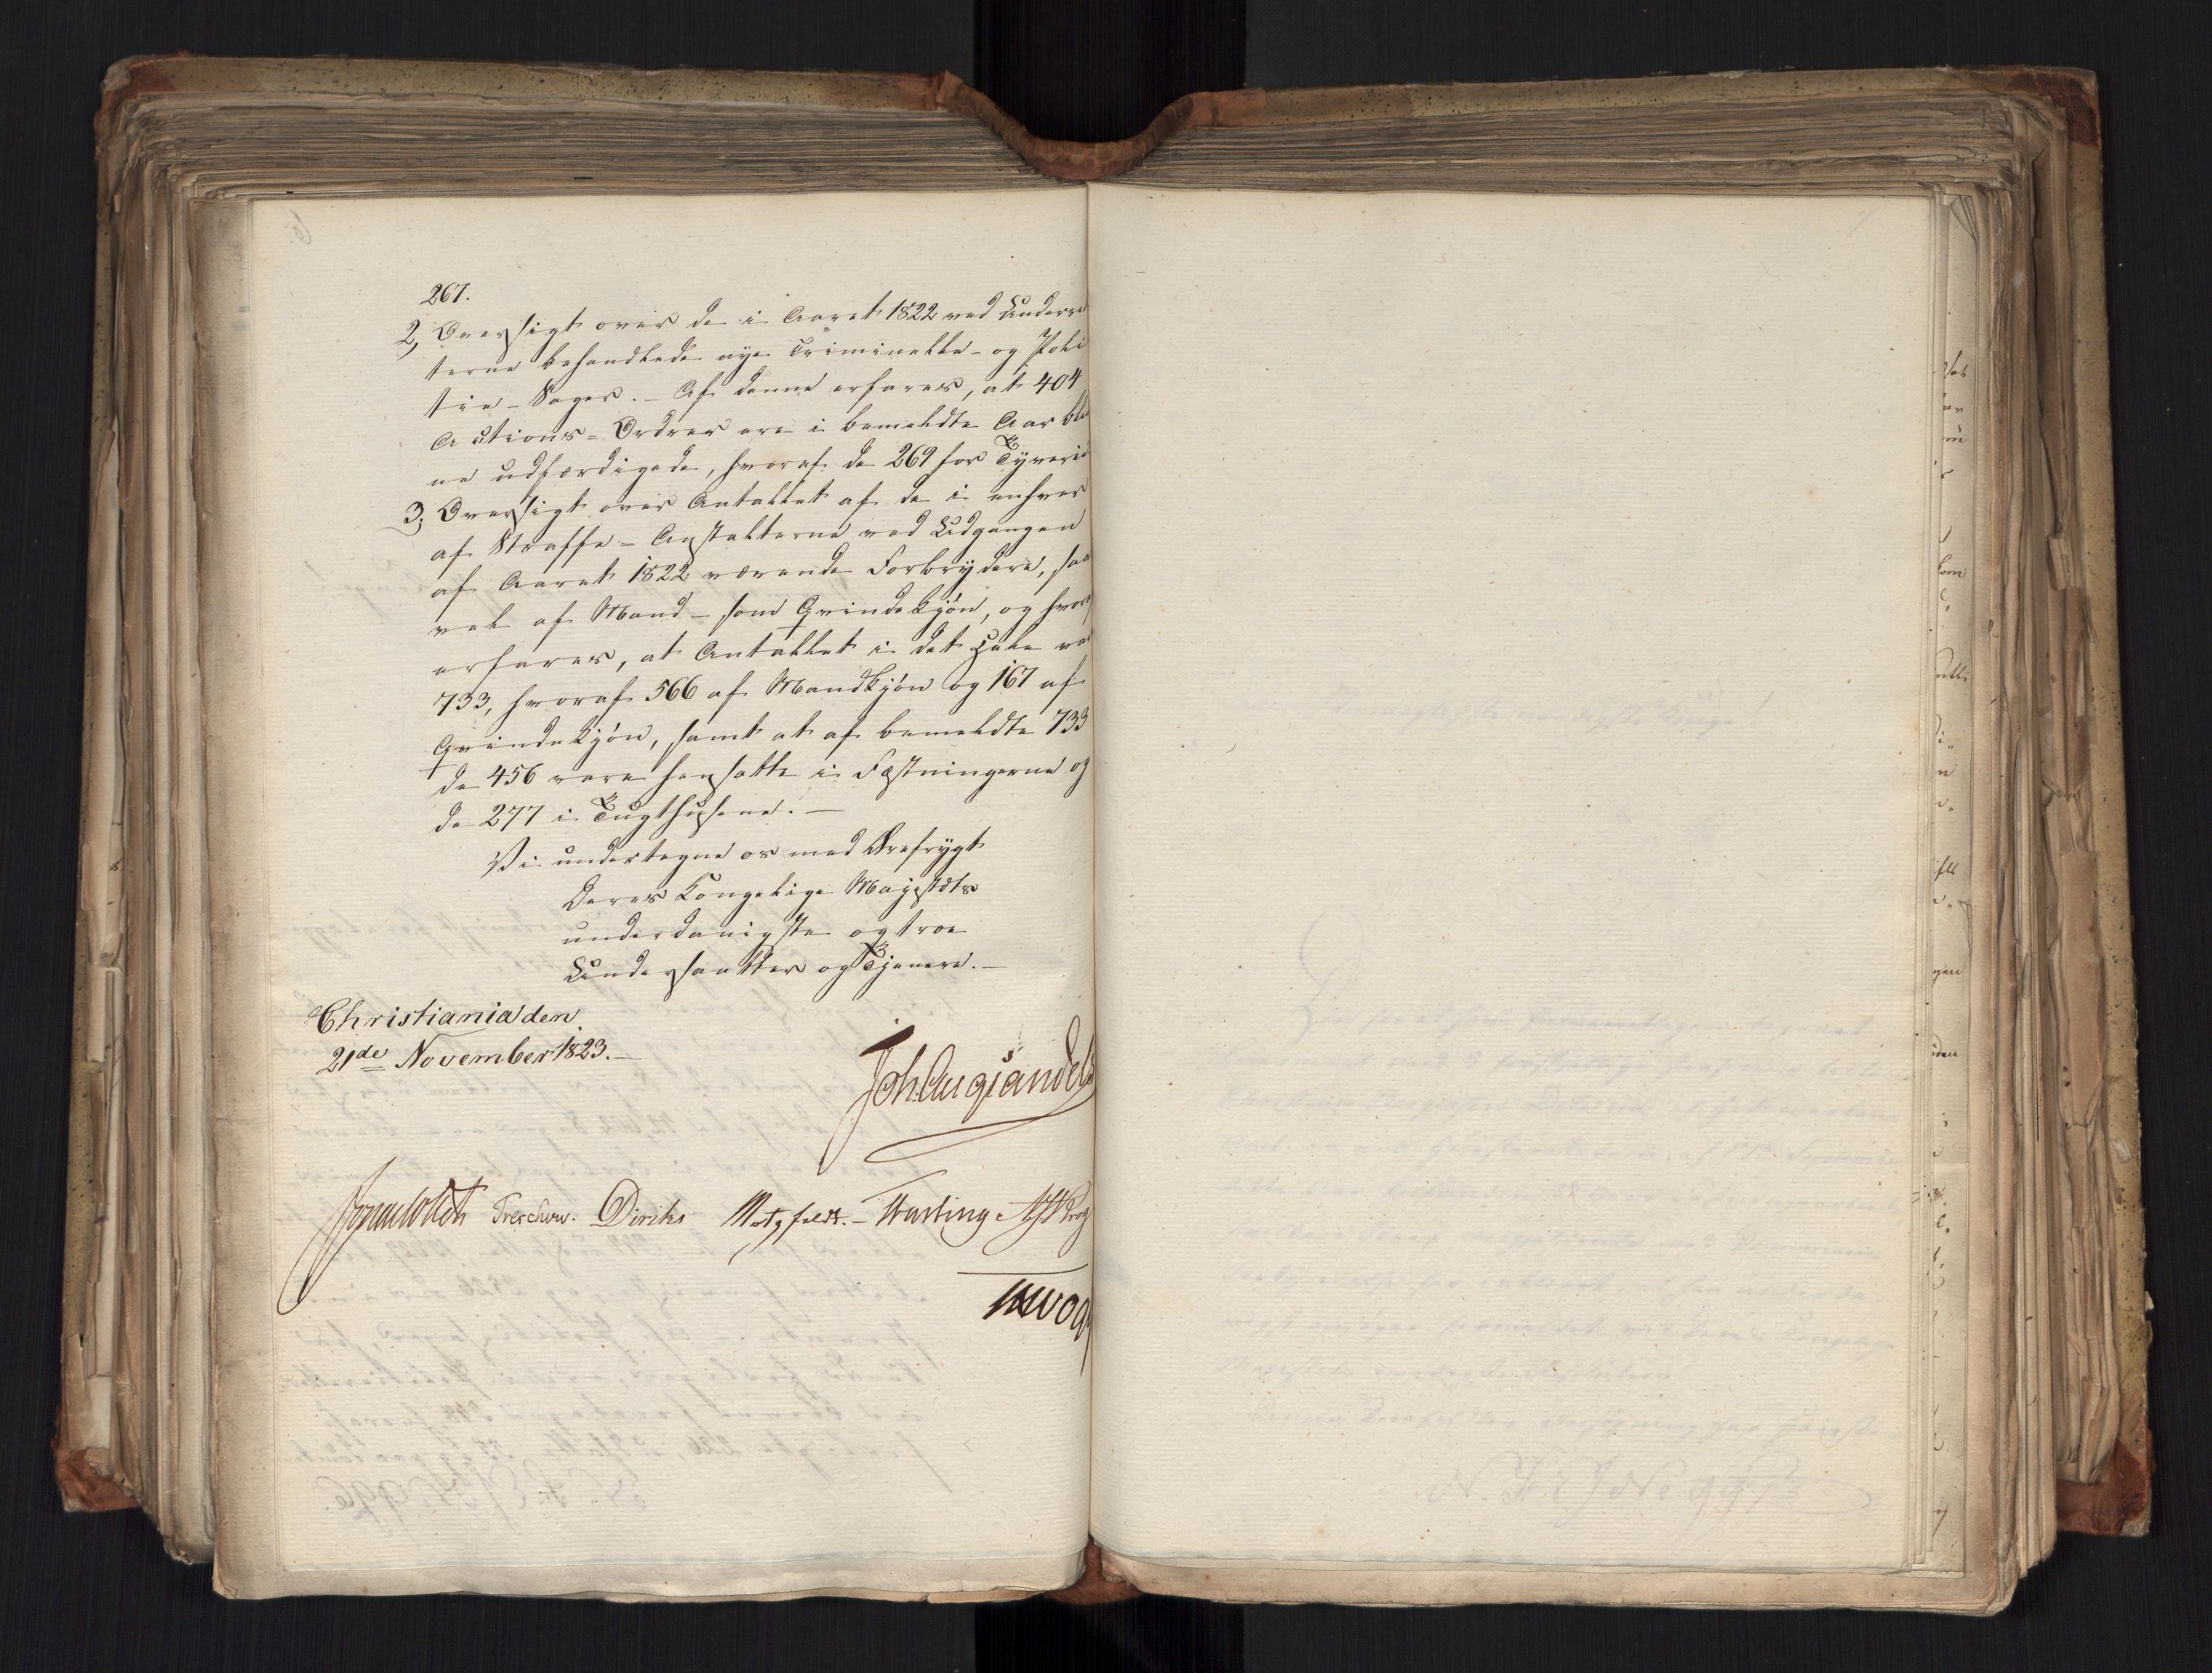 267.
2, Oversigt over de i Aaret 1822 ved Underre
terne behandlede nye Criminelle- og Poli
tie-Sager. - Af denne erfares, at 404
Actions-Ordrer ere i bemeldte Aar ble
ne udfærdigede, hvoraf de 269 for Tyverie
3, Oversigt over Antallet af de i enhver
af Straffe-Anstalterne ved Udgangen
af Aaret 1822 værende Forbrydere, saa
vel af Mand- som Qvindekjøn, og hvor
erfares, at Antallet i det Hele var
733, hvoraf 566 af Mandkjøn og 167 af
Qvindekjøn, samt at af bemeldte 733
de 456 vare hensatte i Fæstningerne og
de 277 i Tugthusene. -
Vi undertegne os med Ærefrygt
Deres Kongelige Majestæts
underdanigste og troe
Undersaatter og Tjenere. -
Christiania den
21de November 1823. -
Joh. Aug. Sandels
Jonas Collett Treschow. Diriks Motzfeldt. - Fasting